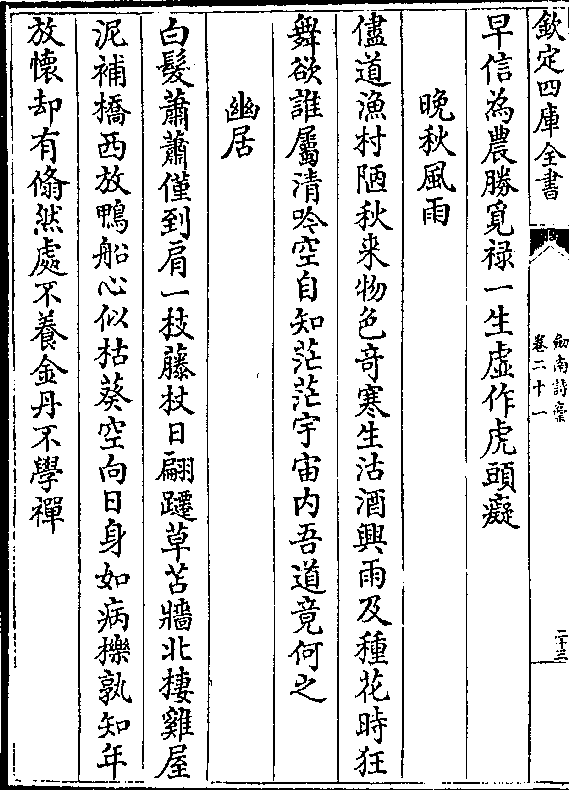 欽定四庫全書
劒南詩藁
卷二十一
二十三
早信為農勝覓禄一生虚作虎頭癡
晚秋風雨
儘道漁村陋秋来物色竒寒生沽酒興雨及種花時狂
舞欲誰屬清吟空自知茫茫宇宙内吾道竟何之
幽居
白髮蕭蕭僅到肩一枝藤杖日翩躚草苫牆北棲雞屋
泥補橋西放鴨船心似枯葵空向日身如病櫟孰知年
放懷却有翛然處不養金丹不學禪